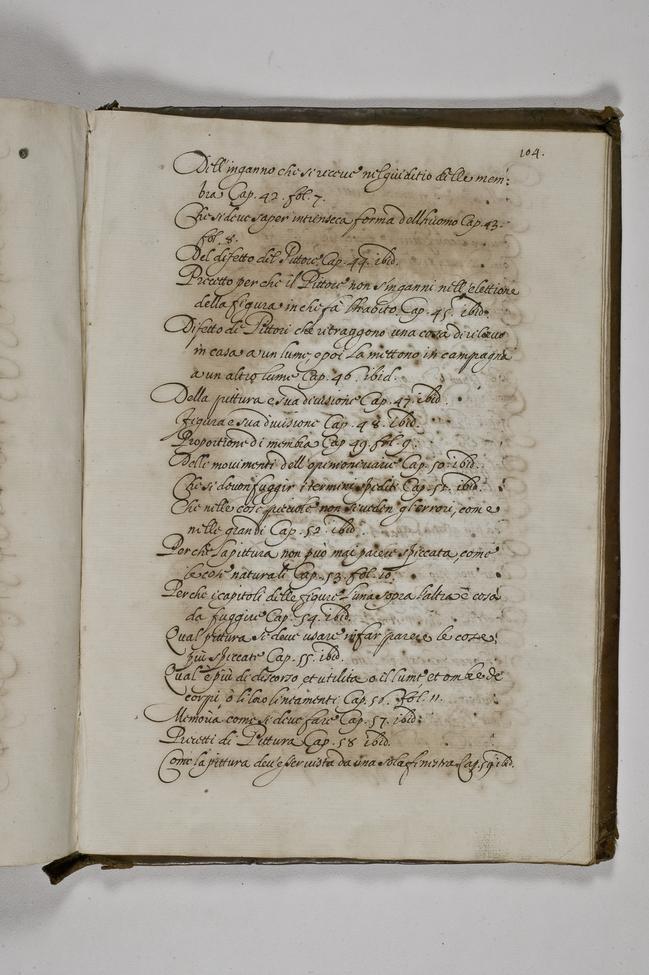 104.
Dell'inganno che si riceve nel giuditio delle mem:
bra Cap. 42. fol. 7.
Che si deve saper intrinseca forma dell'huomo Cap. 43.
fol. 8.
Del difetto del Pittore Cap. 44. ibid.
Precetto perche il Pittore non s'inganni nell'elettione
della figura in che fà l'habito Cap. 45. ibid.
Difetto de Pittori che ritraggono una cosa di rilevo
in casa a un lume, e poi la mettono in campagna
a un altro lume Cap. 46. ibid.
Della pittura e sua divisione Cap. 47. ibid.
Figura e sua divisione Cap. 48. ibid.
Proportione di membra Cap. 49. fol. 9.
Delle movimenti dell' Cap. 50. ibid.
Che si devon fuggir i termini spediti Cap. 51. ibid.
Che nelle cose piccole non si veden gl'errori, come
nelle grandi Cap. 52. ibid.
Perche la pittura non può mai parere spiccata, come
le cose naturali Cap. 53. fol. 10.
Perche i capitoli delle figure l'una sopra l'altra è cosa
da fuggire Cap. 54. ibid.
Qual pittura si deve usare in far parere le cose
più spiccate Cap. 55. ibid.
Qual è più di discorso et utilità o il lume et ombre de
corpi, ò li loro lineamenti Cap. 56. fol. 11.
Memoria come si deve fare Cap. 57. ibid.
Precetti di Pittura Cap. 58 ibid.
Come la pittura dev'esser vista da una sola finestra Cap. 59 ibid.